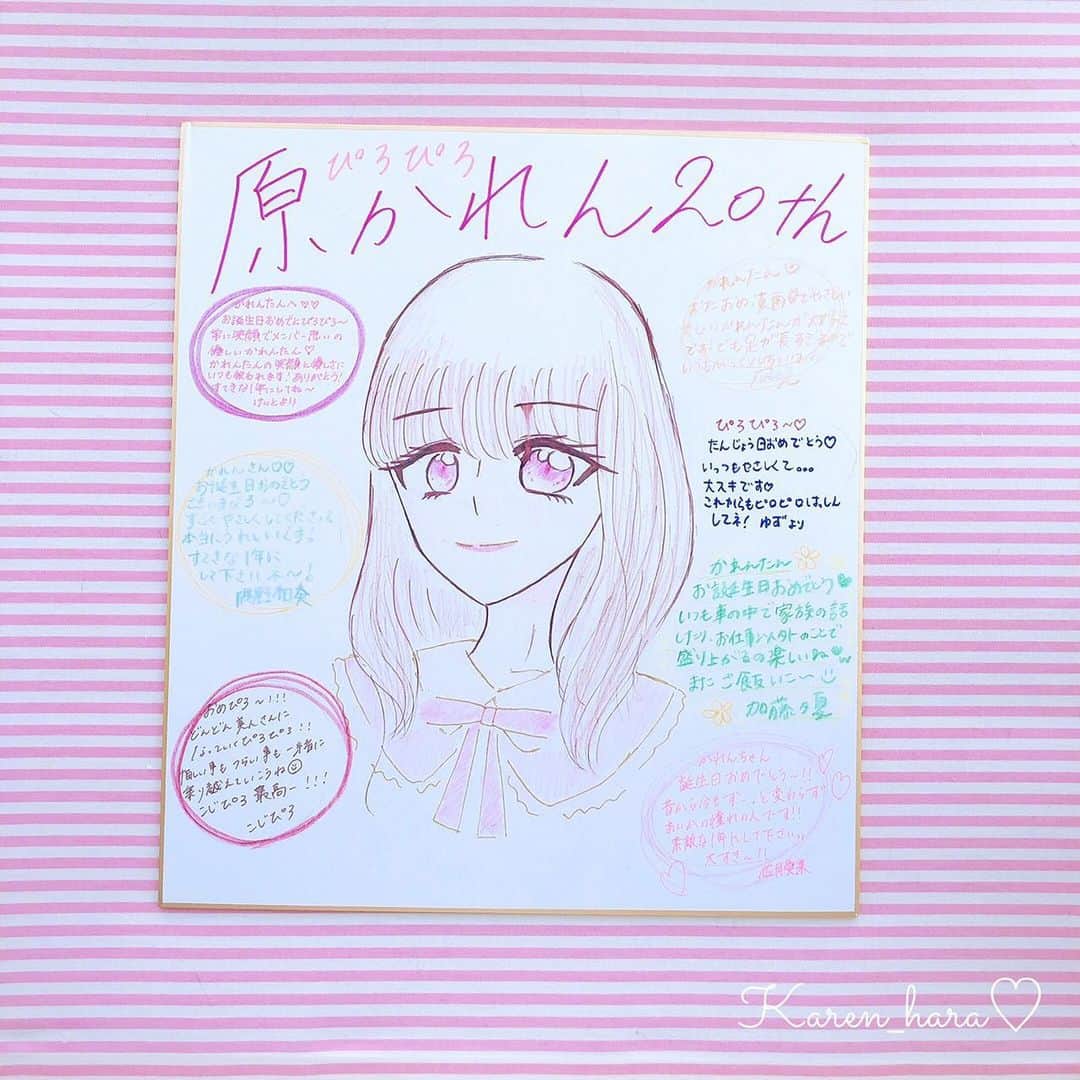 ぴろぴろ
原かれん20th
かれんたんへ♡♡
お誕生日おめでとぴろぴろ〜
常に笑顔でメンバー思いの
優しいかれんたん♡
かれんたんの笑顔と優しさに
いつも救われます!ありがとう!
すてきな1年にしてね〜
けいとより
かれんたん♡
ぴろぴろ〜♡
たんじょう日おめでとう♡
いっつもやさしくて。。。
大スキです♡
これからもピロピロはっしん
してネ! ゆずより
かれんさん♡♡
お誕生日おめでとう
ございます〜♡
本当にうれしいです。
すてきな1年に
して下さいネ〜!
かれんたん
お誕生日おめでとう
いつも車の中で家族の話
したり、お仕事以外のことで
盛り上がるの楽しいね
またご飯いこ〜
加藤夕夏
おめぴろ〜!!!
どんどん美人さんに
なっていくぴろぴろ!!
悔しい事もつらい事も一緒に
乗り越えていこうね
こじぴろ最高ー!!!
こじぴろ
かれんちゃん
誕生日おめでとう〜!!
昔から今もずーっと変わらず
憧れの人です!!
素敵な1年にして下さいっ
大すき〜!!
Karen_hara♡